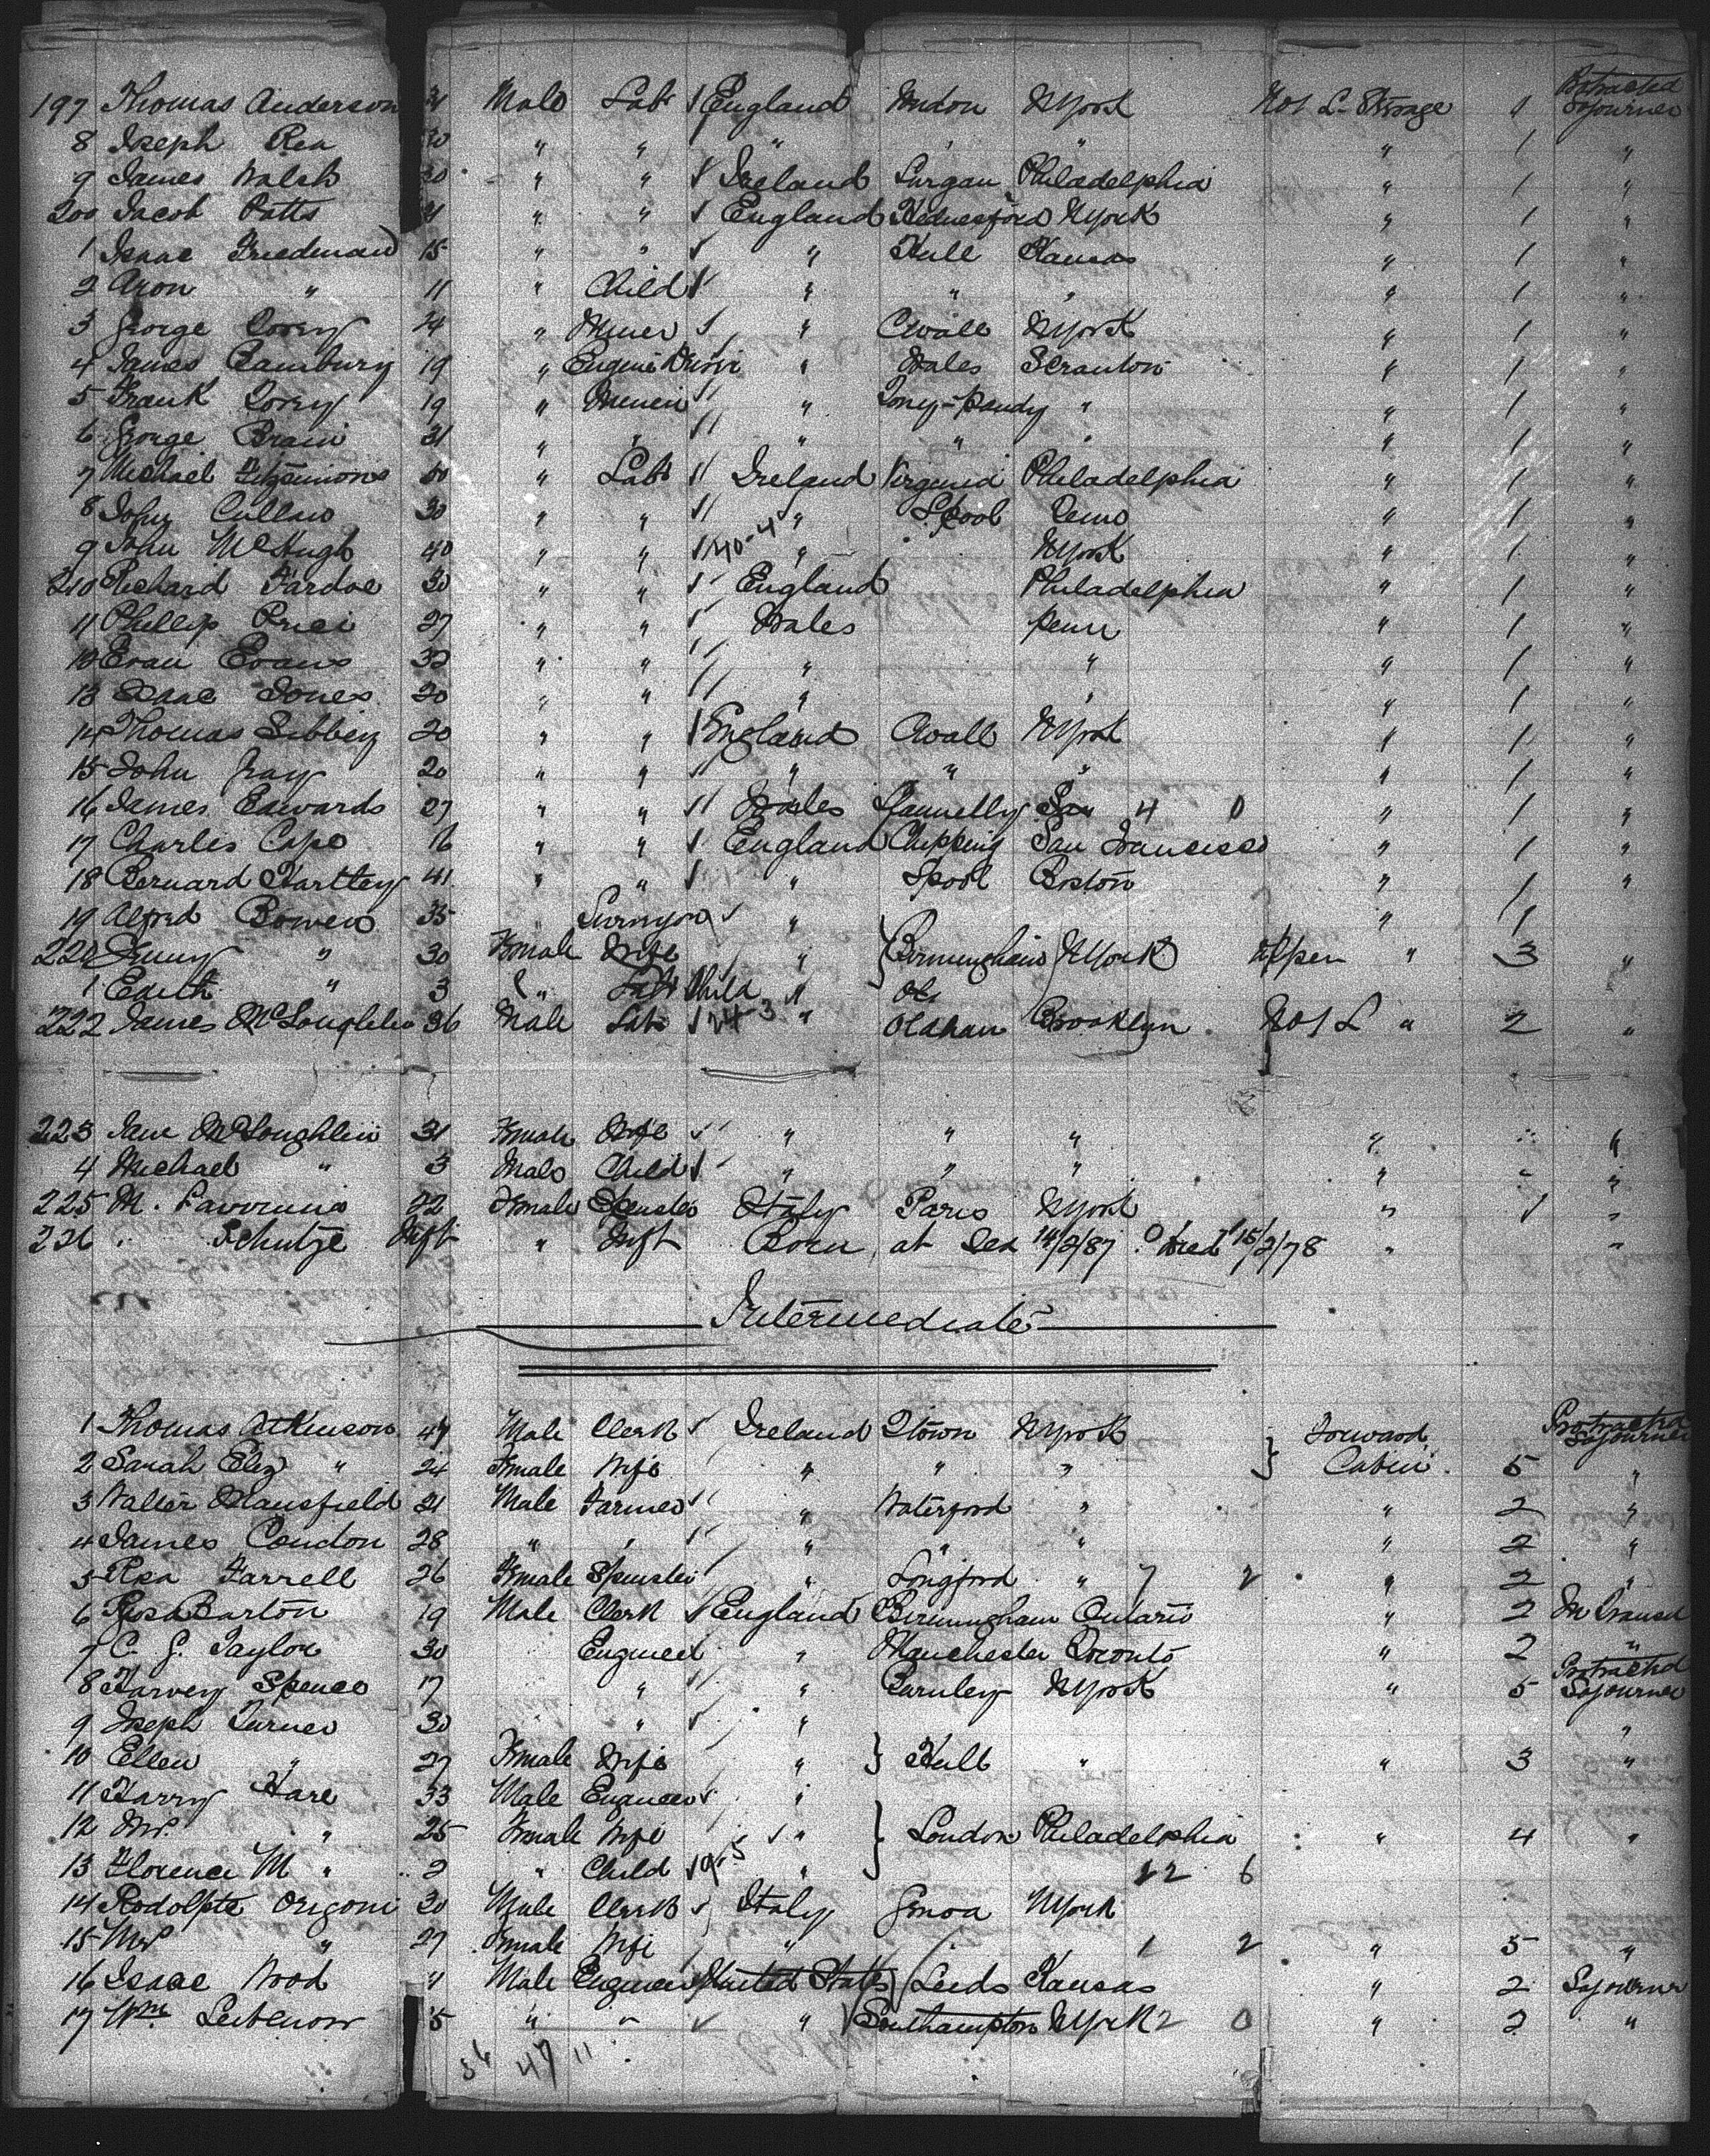 197 Thomas Anderson 31 Male Labr England N York No 1 L. Steerage 1 Protracted Sojourner
8 Joseph Rea 30 " " " " " 1 "
9 James Walsh 30 " " Ireland Lurgan Philadelphia " 1 "
200 Jacob Potts 21 " " England Hednesford N York " 1 "
1 Isaac Friedman 15 " " " Hull Kansas " 1 "
2 Aron " 11 " Child " " " " 1 "
3 George Corey 24 " Miner " Cwall N York " 1 "
4 James 19 " Engine Driver " Wales Scranton " 1 "
5 Frank Corey 19 " Miner " Toney-Pandy " " 1 "
6 George Brain 31 " " " " " " 1 "
7 Michael Fitzsimons 50 " Labr Ireland Virginia Philadelphia " 1 "
8 John Cullen 30 " " " L'pool " 1 "
9 John McHugh 40 " " 40-4 " N York " 1 "
210 Richard Fardoe 30 " " England Philadelphia " 1 "
11 Phillip Price 27 " " Wales Penn " 1 "
12 Evan Evans 32 " " " " " 1 "
13 Isaac Jones 20 " " " " " 1 "
14 Thomas Libbey 20 " " England Cwall N York " 1 "
15 John Gray 20 " " " " " " 1 "
16 James Edwards 27 " " Wales Llannelly San 4 0 " 1 "
17 Charles Cape 16 " " England Chipping San Francisco " 1 "
18 Bernard Hartley 41 " " " L'pool Boston " 1 "
19 Alfred Bowen 35 " Surveyor " " 1
220 " 30 Female Wife " Birmingham N York Upper " 3 "
1 Edith " 3 " Child "
222 James McLoughlin 36 Male Labr 24-3 " Oldham Brooklyn No 1 L " 2 "
223 Jane McLoughlin 31 Female Wife " " " " "
4 Michael " 3 Male Child " " " " "
225 M. 22 Female Spinster Italy Paris N York " 1 "
226 Schutze Inft " Inft Born at Sea 14/2/87 Died 15/2/78 " "
Intermediate
1 Thomas Atkinson 47 Male Clerk Ireland Qtown N York Forward Protracted Sojourner
2 Sarah Eliz " 24 Female Wife " " " Cabin 5 "
3 Walter Mansfield 21 Male Farmer " Waterford " " 2 "
4 James Condon 28 " " " " " " 2 "
5 Rosa Farrell 26 Female Spinster " Longford " 7 2 " 2 "
6 Barton 19 Male Clerk England Birmingham Ontario " 2 In Transit
7 C. G. Taylor 30 Engineer " Manchester Toronto " 2 "
8 Harvey Spence 17 " " Burnley N York " 5 Protracted Sojourner
9 Joseph Turner 30 " " "
10 Ellen " 27 Female Wife " Hull " " 3 "
11 Harry Hare 33 Male Engineer "
12 Mrs. " 25 Female Wife " London Philadelphia " 4 "
13 Florence M " 2 " Child " 12 6
14 Rodolphe Origoni 30 Male Clerk Italy Genoa N York
15 Mrs " 27 Female Wife " 1 2 " 5 "
16 Isaac Wood Male Engineer United States Leeds Kansas " 2 Sojourner
17 Wm. Leibenow 5 " " " Southampton N York 2 0 " 2 "
36 47 11